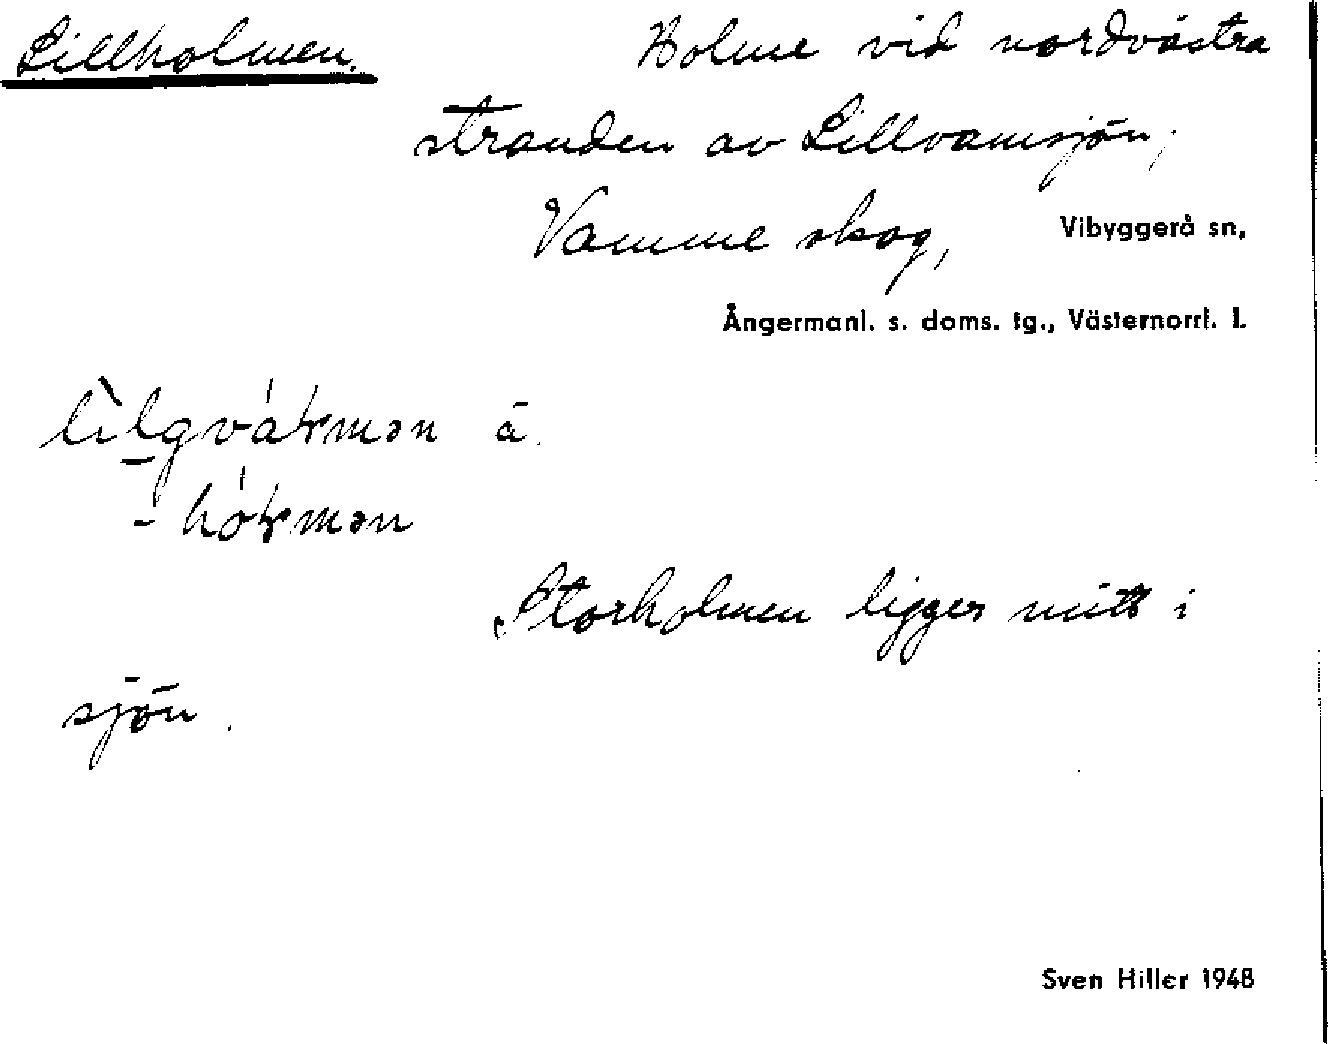 Lillholmen. Holme vid nordvästra
stranden av Lillvamsjön,
Vamme skog, Vibyggerå sn,
Ångermanl. s. doms. tg., Västernorrl. l.
å.
Storholmen ligger mitt i
sjön.
Sven Hiller 1948